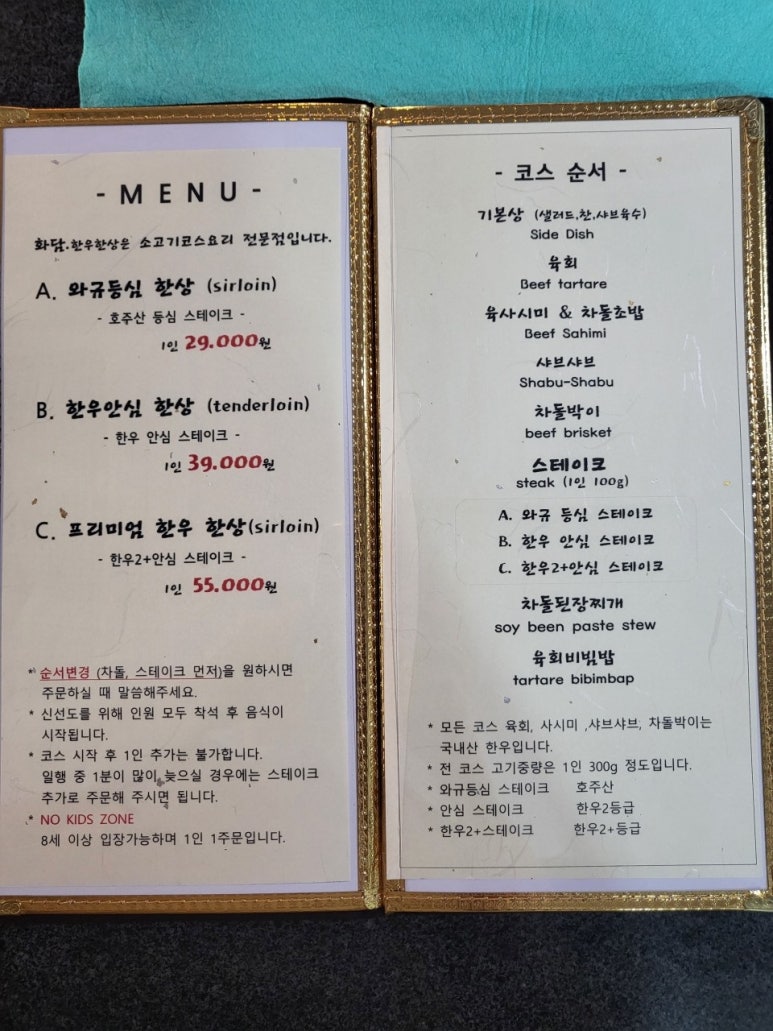 - MENU -
화담.한우한상은 소고기코스요리 전문점입니다.
A. 와규등심 한상 (sirloin)
- 호주산 등심 스테이크 -
1인 29.000원
B. 한우안심 한상 (tenderloin)
- 한우 안심 스테이크 -
1인 39.000원
C. 프리미엄 한우 한상(sirloin)
- 한우2+안심 스테이크 -
1인 55.000원
* 순서변경 (차돌, 스테이크 먼저)을 원하시면
주문하실 때 말씀해주세요.
* 신선도를 위해 인원 모두 착석 후 음식이
시작됩니다.
* 코스 시작 후 1인 추가는 불가합니다.
일행 중 1분이 많이 늦으실 경우에는 스테이크
추가로 주문해 주시면 됩니다.
* NO KIDS ZONE
8세 이상 입장가능하며 1인 1주문입니다.
- 코스 순서 -
기본상 (샐러드,찬,샤브육수)
Side Dish
육회
Beef tartare
육사시미 & 차돌초밥
Beef Sahimi
샤브샤브
Shabu-Shabu
차돌박이
beef brisket
스테이크
steak (1인 100g)
A. 와규 등심 스테이크
B. 한우 안심 스테이크
C. 한우2+안심 스테이크
차돌된장찌개
soy been paste stew
육회비빔밥
tartare bibimbap
* 모든 코스 육회, 사시미 ,샤브샤브, 차돌박이는
국내산 한우입니다.
* 전 코스 고기중량은 1인 300g 정도입니다.
* 와규등심 스테이크 호주산
* 안심 스테이크 한우2등급
* 한우2+스테이크 한우2+등급